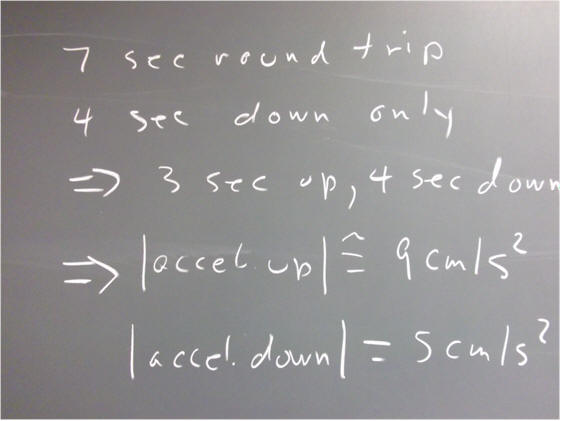 7 sec round trip
4 sec down only
⇒ 3 sec up, 4 sec down
⇒ |accel. up| ≅ 9 cm/s²
|accel. down| = 5 cm/s²